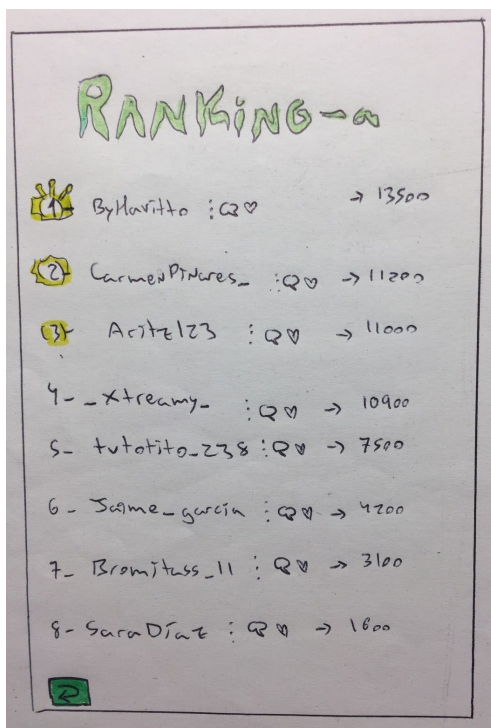 RANKiNG-a
1- ByHavitto : → 13500
2- CarmenPinares_ : → 11200
3- Aritz123 : → 11000
4- _Xtreamy_ : → 10900
5- tutotito_238 : → 7500
6- Jaime_garcía : → 4200
7- Bromitass_11 : → 3100
8- SaraDíaz : → 1600